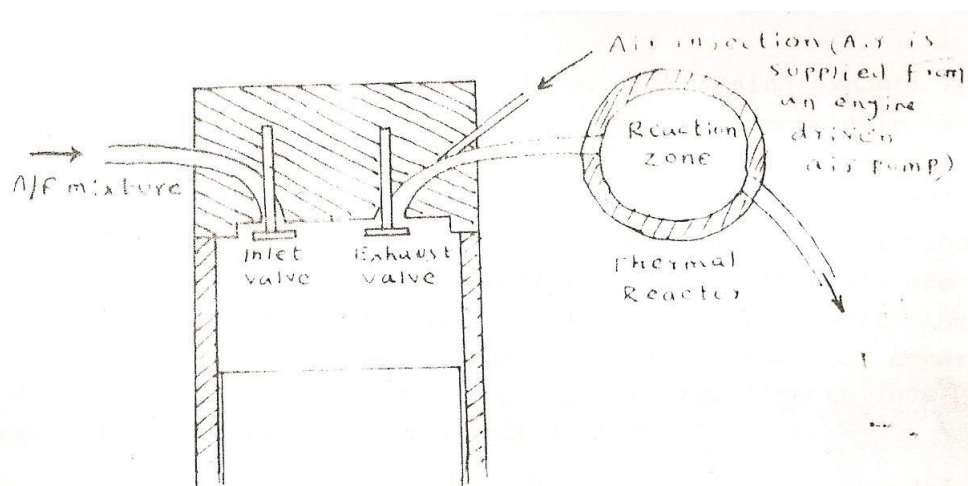 Air injection (Air is
supplied from
an engine
driven
air pump)
A/F mixture
Inlet
valve
Exhaust
valve
Reaction
zone
Thermal
Reactor